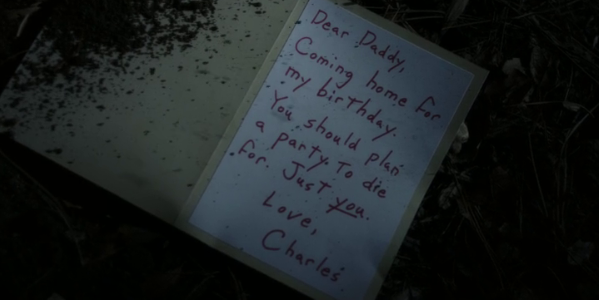 Dear Daddy,
Coming home for
my birthday.
You should plan
a party. To die
for. Just you.
Love,
Charles.